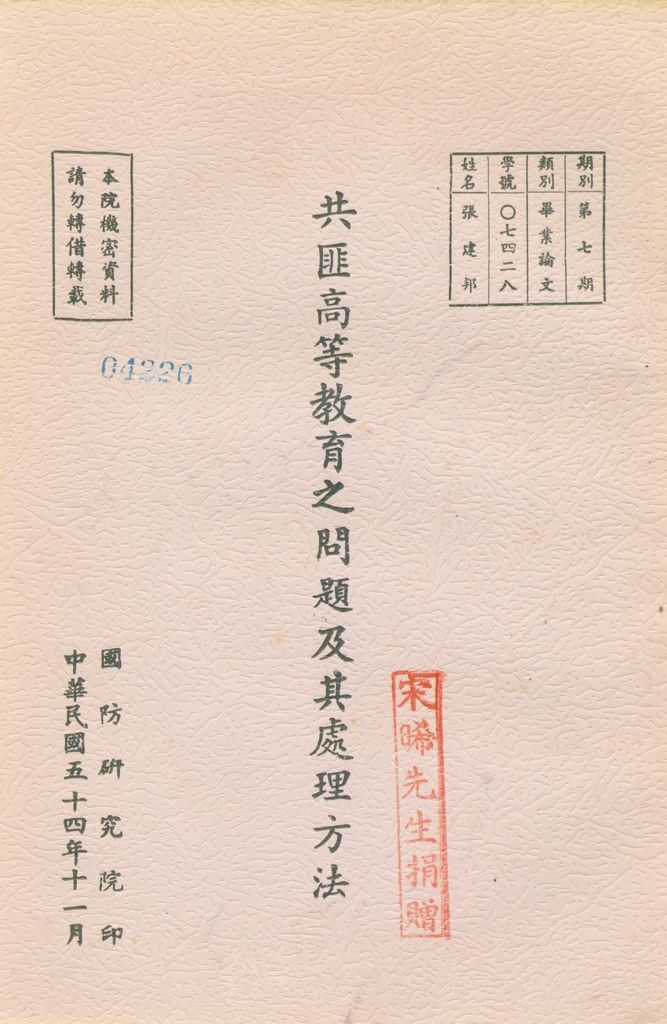 期別 第七期
類別 畢業論文
學號 〇七四二八
姓名 張建邦
共匪高等教育之問題及其處理方法
本院機密資料
請勿轉借轉載
04226
宋晞先生捐贈
國防研究院印
中華民國五十四年十一月